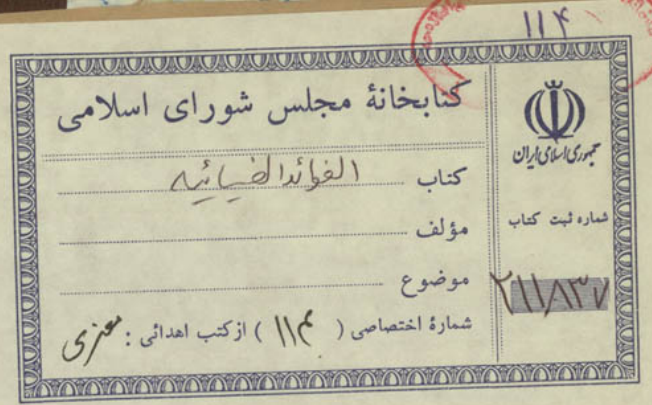 ۱۱۴
کتابخانهٔ مجلس شورای اسلامی
کتاب الفوائد الضیائیه
مؤلف
موضوع
شمارهٔ اختصاصی ( ۱۱۴ ) از کتب اهدائی : معزی
جمهوری اسلامی ایران
شماره ثبت کتاب
۲۱۱۸۳۷